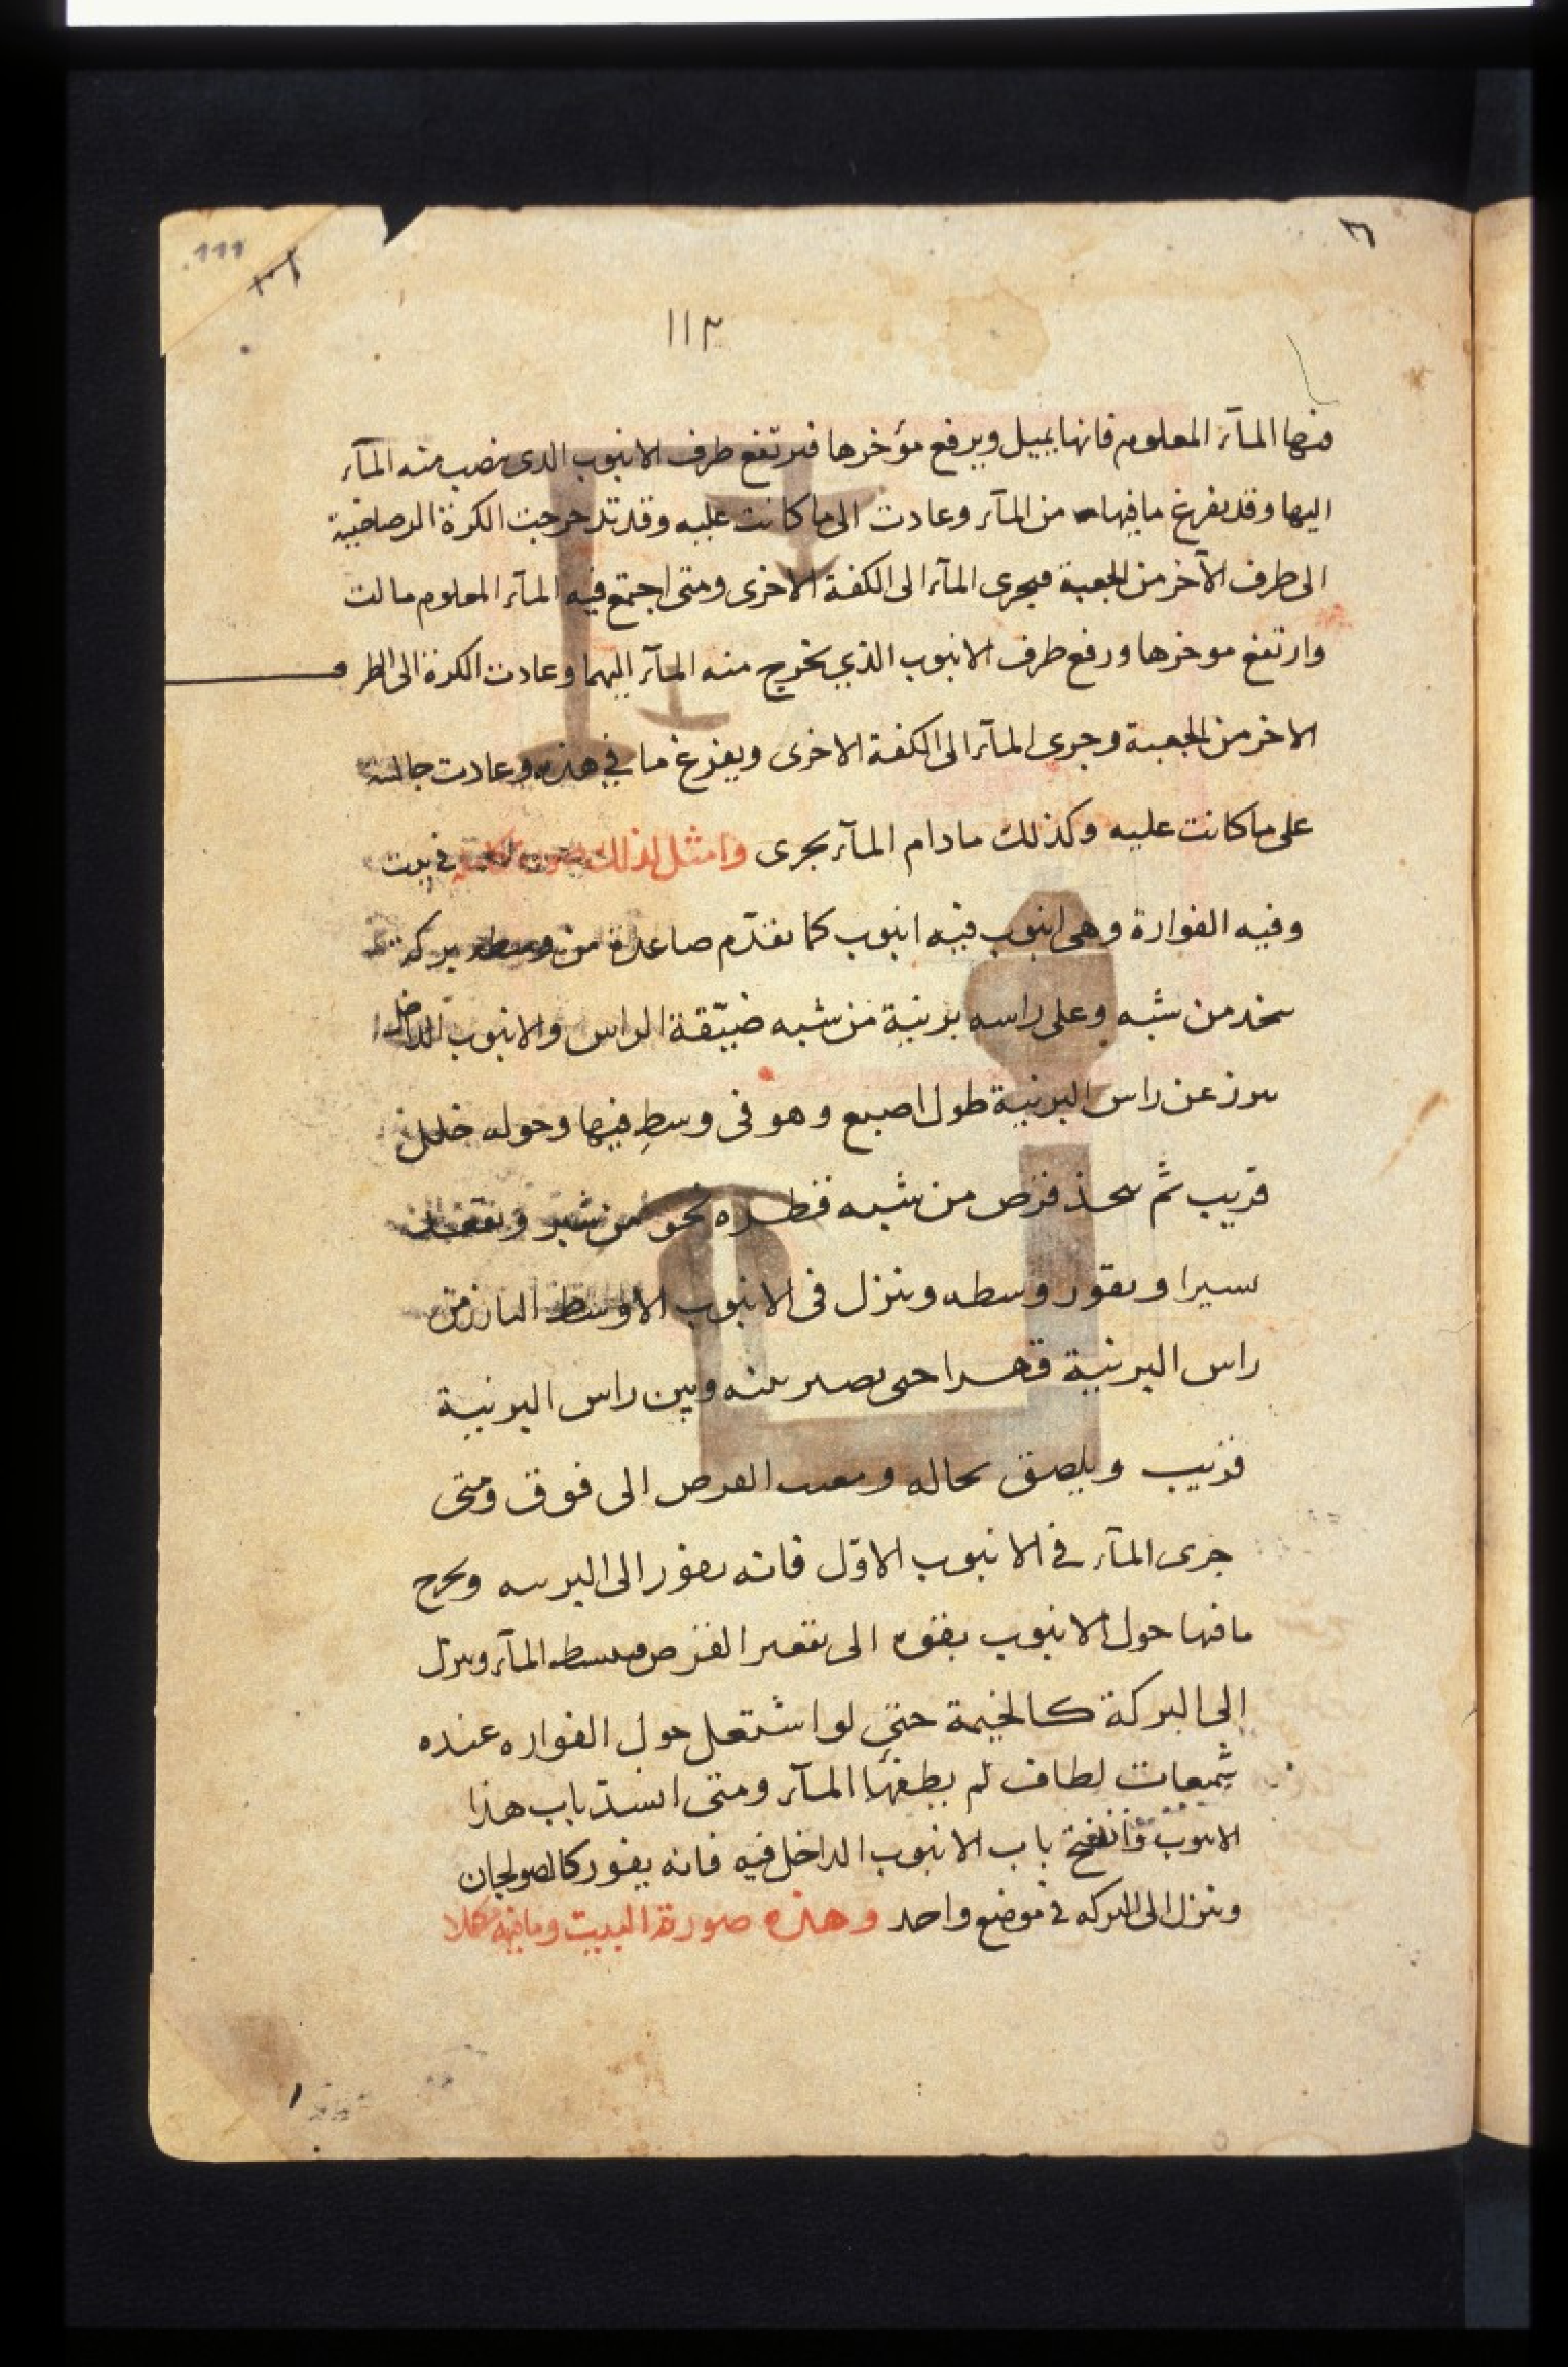 111
١١٢
فيها المآء المعلوم فانها يميل ويرفع مؤخرها فترتفع طرف الانبوب الذى ينصب منه المآء
اليها وقد يفرغ ما فيها من المآء وعادت الى ما كانت عليه وقد تدحرجت الكرة الرصاصية
الى طرف الآخر من الجعبة فيجرى المآء الى الكفة الاخرى ومتى اجتمع فيه المآء المعلوم مالت
وارتفع موخرها ورفع طرف الانبوب الذي يخرج منه المآء اليهما وعادت الكرة الى الطرف
الاخر من الجعبة وجرى المآء الى الكفة الاخرى ويفرغ ما في هذه وعادت
على ما كانت عليه وكذلك مادام المآء يجرى وامثل لذلك صورة في بيت
وفيه الفوارة وهى انبوب فيه انبوب كما تقدّم صاعدة من وسط بركة
يتخذ من شبه وعلى راسه برنية من شبه ضيّقة الراس والانبوب الداخل
يبرز عن راس البرنية طول اصبع وهو فى وسطِ فيها وحوله خلل
قريب ثم يتخذ قرص من شبه قطره نحو من شبر ويقعد
يسيرا ويقور وسطه وينزل فى الانبوب الاوسط البارز من
راس البرنية قهرا حتى يصير بينه وبين راس البرنية
قريب ويلصق بحاله ومقعب القرص الى فوق ومتى
جرى المآء في الانبوب الاوّل فانه يفور الى البرنيه ويخرج
ما فيها حول الانبوب بقوه الى تقعير القرص فينبسط المآء وينزل
الى البركة كالخيمة حتى لو اشتعل حول الفواره عنده
شميعات لطاف لم يطفها المآء ومتى انسدّ باب هذا
الانبوب وانفتح باب الانبوب الداخل فيه فانه يفور كالصولجان
وينزل الى البركه في موضع واحد وهذه صورة البيت وما فيه مكملا